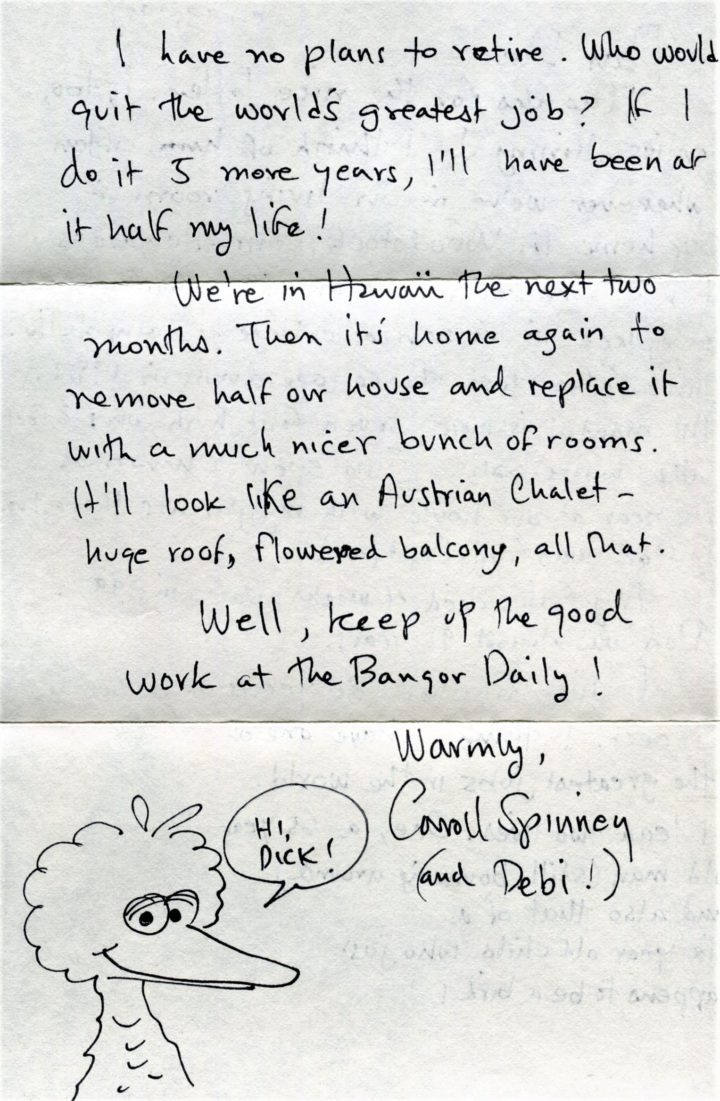 I have no plans to retire. Who would
quit the worlds greatest job? If I
do it 5 more years, I'll have been at
it half my life!
We're in Hawaii the next two
months. Then it's home again to
remove half our house and replace it
with a much nicer bunch of rooms.
It'll look like an Austrian Chalet -
huge roof, flowered balcony, all that.
Well, keep up the good
work at the Bangor Daily!
Warmly,
Caroll Spinney
(and Debi!)
HI,
DICK!